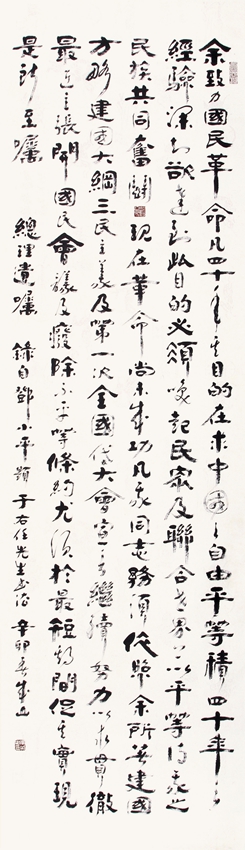 余致力國民革命凡四十年其目的在求中國之自由平等積四十年之
經驗深知欲達到此目的必須喚起民眾及聯合世界以平等待我之
民族共同奮鬪現在革命尚未成功凡我同志務須依照余所著建國
方略建國大綱三民主義及第一次全國代大會宣言繼續努力以求貫徹
最近主張開國民會議及廢除不平等條約尤須於最短期間促其實現
是所至囑 總理遺囑 錄自鄧小平題于右任先生書法 辛卯春